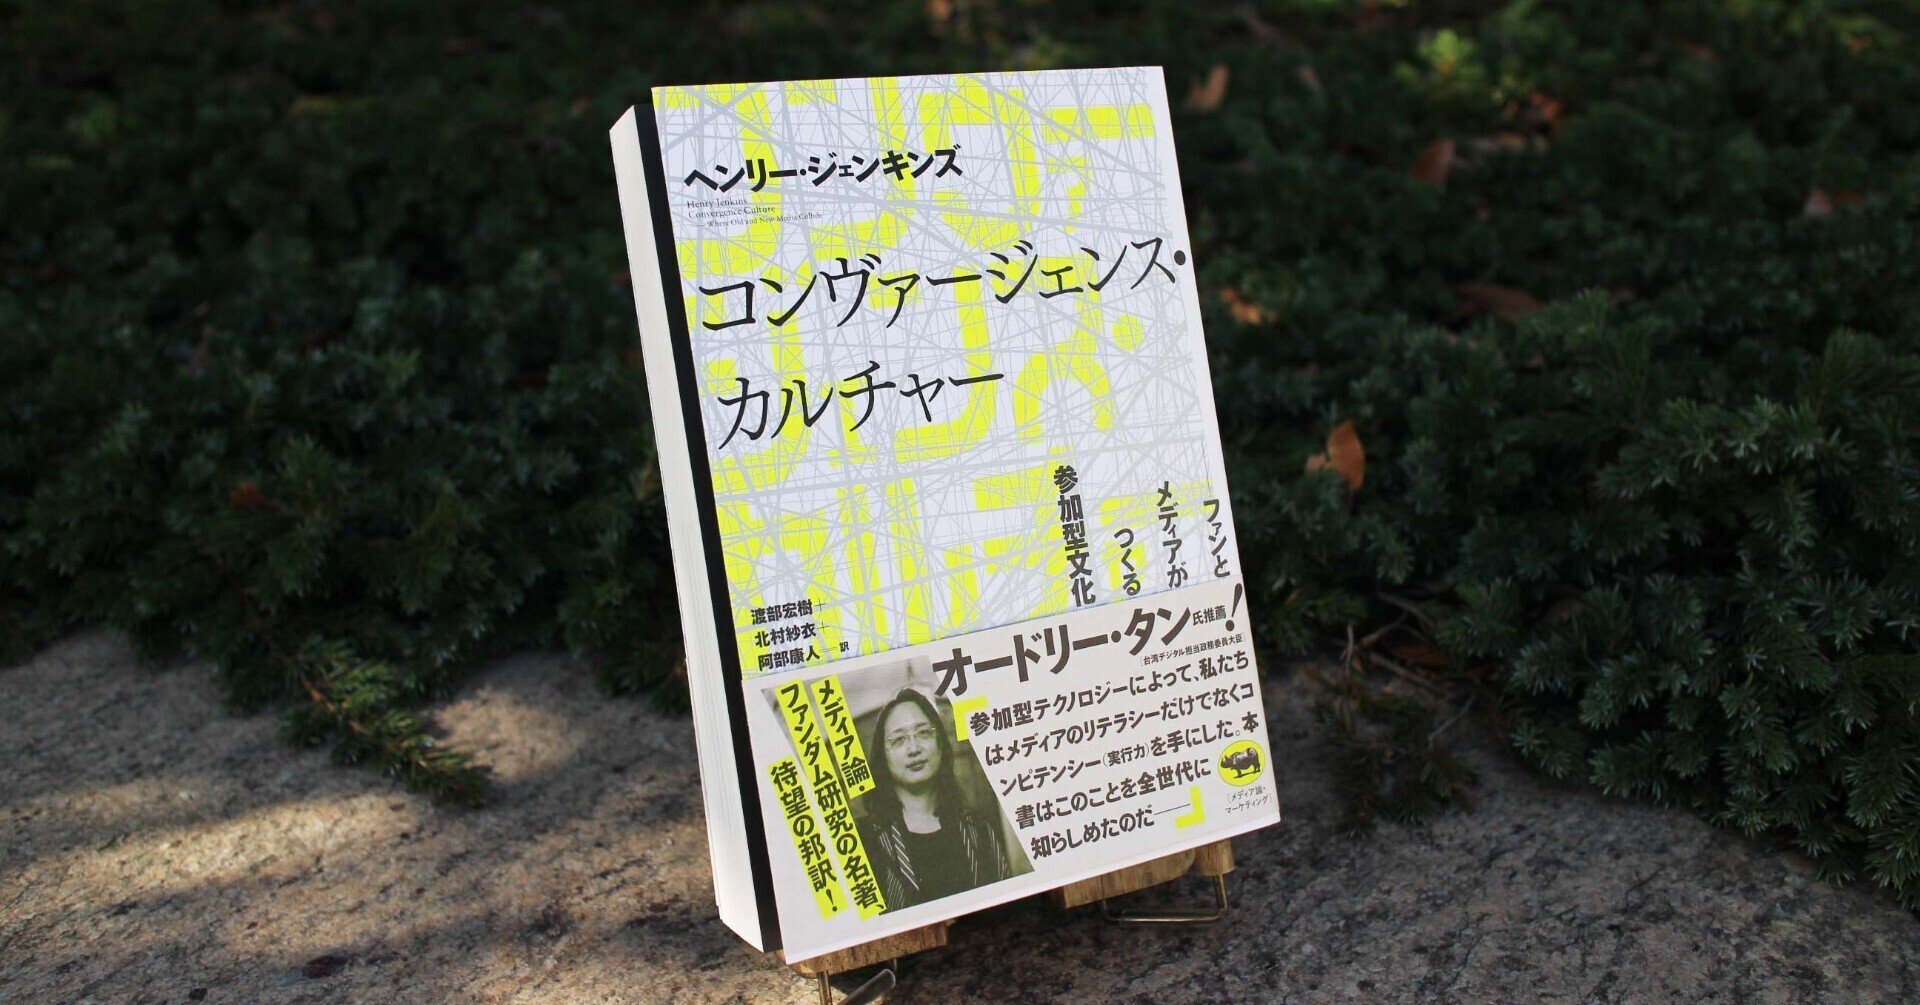 ヘンリー・ジェンキンズ
Henry Jenkins
Convergence Culture
—Where Old and New Media Collide
コンヴァージェンス・
カルチャー
ファンと
メディアが
つくる
参加型文化
渡部宏樹+
北村紗衣+
阿部康人——訳
オードリー・タン氏推薦!
[台湾デジタル担当政務委員大臣]
「参加型テクノロジーによって、私たち
はメディアのリテラシーだけでなくコ
ンピテンシー(実行力)を手にした。本
書はこのことを全世代に
知らしめたのだ——」
メディア論・
ファンダム研究の名著、
待望の邦訳!
[メディア論・
マーケティング]